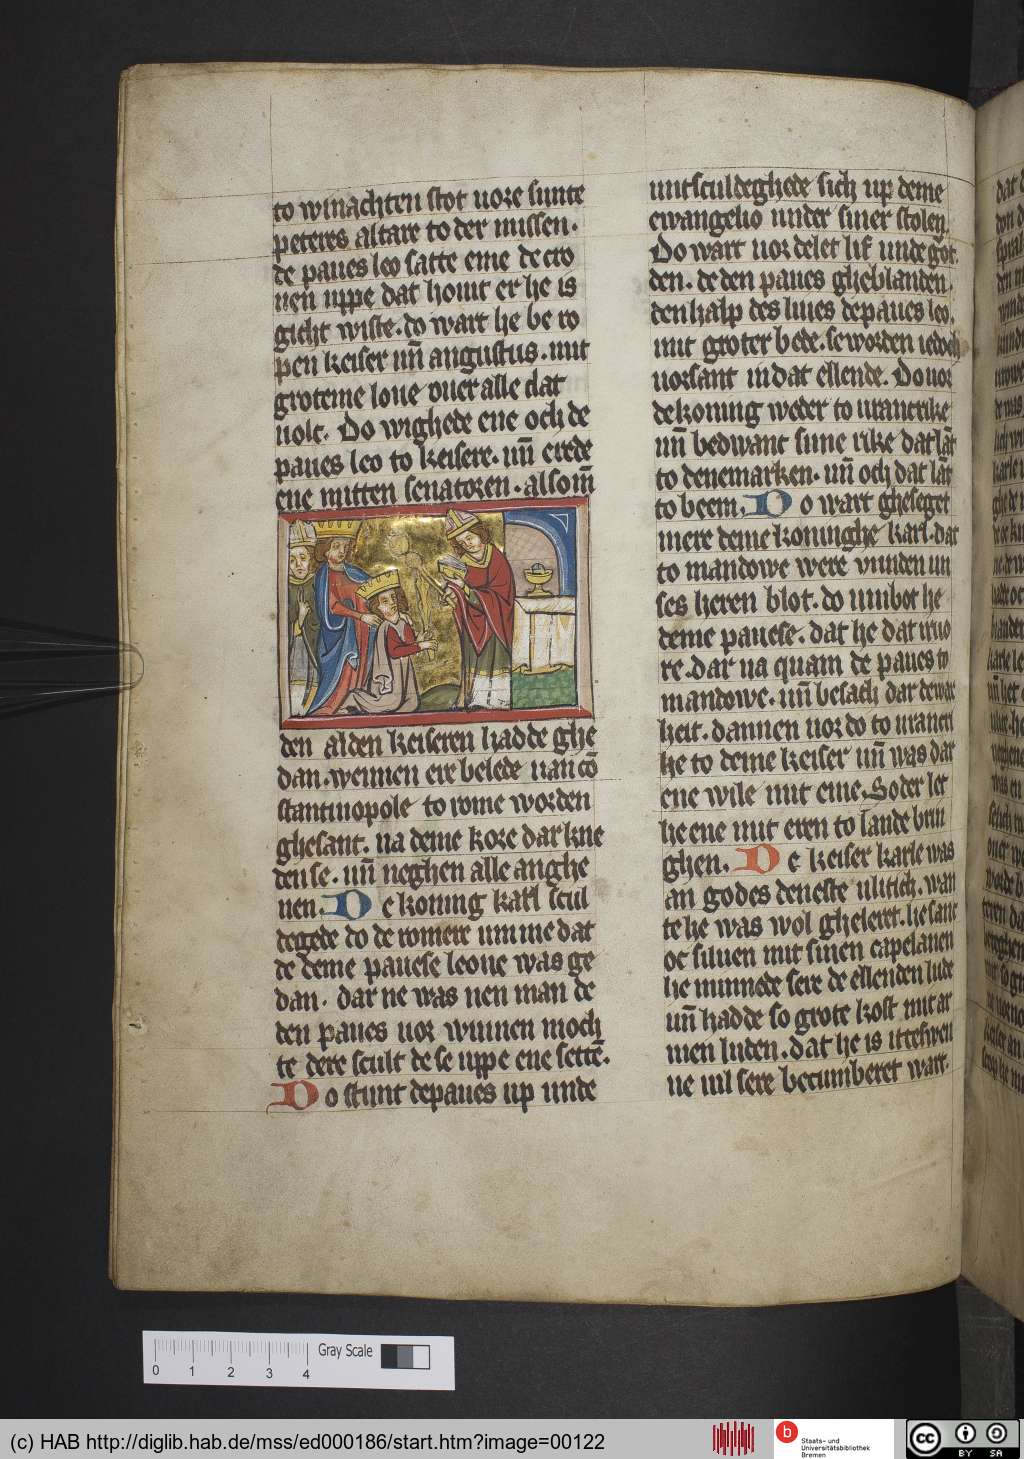 to winachten stot uore sunte
peteres altare to der missen.
de paues leo satte eme de cro
nen uppe dat houit er he is
gicht wiste. do wart he be ro
pen keiser un̄ augustus. mit
groteme loue ouer alle dat
uolc. Do wighede ene och de
paues leo to keisere. un̄ erede
ene mitten senatoren. also m̄
den alden keiseren hadde ghe
dan. wennen ere belede uan cō
stantinopole to rome worden
ghesant. na deme kore dar kne
den se. un̄ neghen alle anghe
nen. De koning karl scul
degede do de romere umme dat
se deme pauese leone was ge
dan. dar ne was nen man de
den paues uor winnen moch
te dere scult de se uppe ene settē.
Do stunt de paues up unde
untsculdeghede sich up deme
ewangelio under siner stolen.
Do wart uor delet lif unde got.
den. de den paues gheblanden.
den halp des liues de paues leo.
mit groter bede. se worden iedoch
uorsant in dat ellende. Do uor
de koning weder to urancrike
un̄ bedwanc sine rike dat lāt
to denemarken. un̄ och dat lāt
to beem. Do wart gheseget
mere deme koninghe karl. dat
to mandowe were uunden un
ses heren blot. do umbot he
deme pauese. dat he dat iruo
re. dar na quam de paues to
mandowe. un̄ besach dar de war
heit. dannen uor do to uranc
he to deme keiser un̄ was dar
ene wile mit eme. So der let
he ene mit eren to lande brin
ghen. De keiser karle was
an godes deneste ulitich. wan
te he was wol gheleret. he sanc
oc siluen mit sinen capelanen
he minnede sere de ellenden lude
un̄ hadde so grote kost mit ar
men luden. dat he is itteswen
ne uil sere becumberet wart.
Gray Scale
0 1 2 3 4
(c) HAB http://diglib.hab.de/mss/ed000186/start.htm?image=00122
b
Staats- und
Universitätsbibliothek
Bremen
cc
BY SA